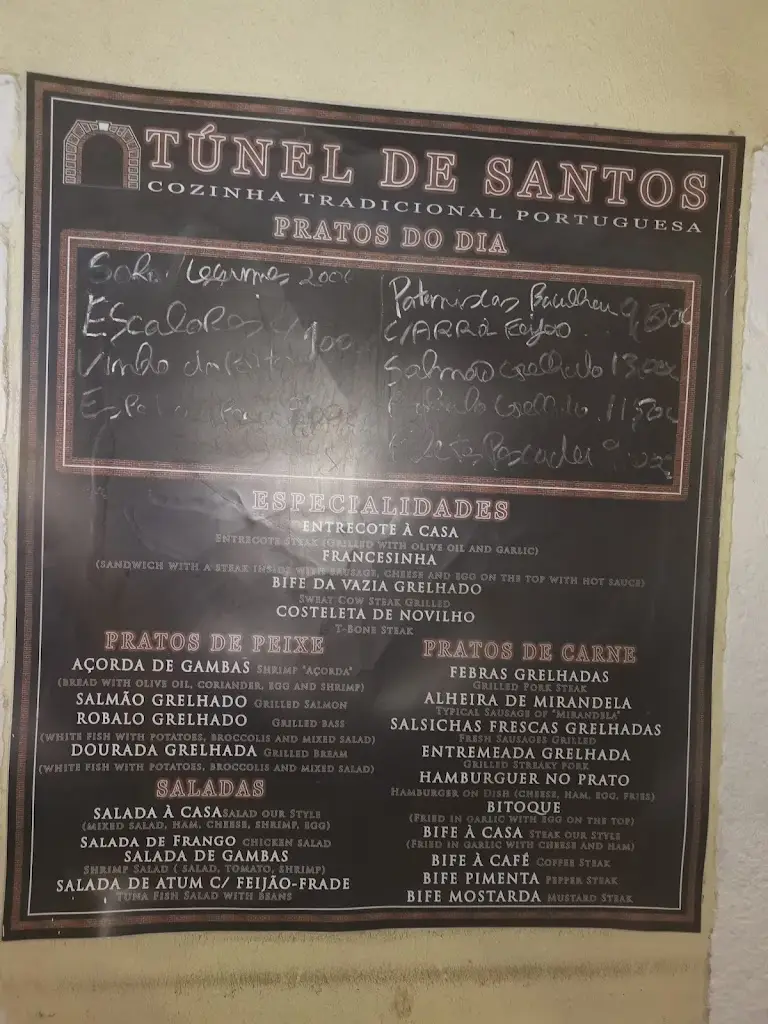 TÚNEL DE SANTOS
COZINHA TRADICIONAL PORTUGUESA
PRATOS DO DIA
Legumes 2,00€
Escalopes
Vinho
Pataniscas Bacalhau 9,80€
C/ARRÔ Feijão
Salmão Grelhado 13,00€
Grelhado 11,50€
ESPECIALIDADES
ENTRECOTE À CASA
ENTRECOTE STEAK (GRILLED WITH OLIVE OIL AND GARLIC)
FRANCESINHA
(SANDWICH WITH A STEAK INSIDE WITH SAUSAGE, CHEESE AND EGG ON THE TOP WITH HOT SAUCE)
BIFE DA VAZIA GRELHADO
SWEAT COW STEAK GRILLED
COSTELETA DE NOVILHO
T-BONE STEAK
PRATOS DE PEIXE
AÇORDA DE GAMBAS SHRIMP "AÇORDA"
(BREAD WITH OLIVE OIL, CORIANDER, EGG AND SHRIMP)
SALMÃO GRELHADO GRILLED SALMON
ROBALO GRELHADO GRILLED BASS
(WHITE FISH WITH POTATOES, BROCCOLIS AND MIXED SALAD)
DOURADA GRELHADA GRILLED BREAM
(WHITE FISH WITH POTATOES, BROCCOLIS AND MIXED SALAD)
SALADAS
SALADA À CASA SALAD OUR STYLE
(MIXED SALAD, HAM, CHEESE, SHRIMP, EGG)
SALADA DE FRANGO CHICKEN SALAD
SALADA DE GAMBAS
SHRIMP SALAD ( SALAD, TOMATO, SHRIMP)
SALADA DE ATUM C/ FEIJÃO-FRADE
TUNA FISH SALAD WITH BEANS
PRATOS DE CARNE
FEBRAS GRELHADAS
GRILLED PORK STEAK
ALHEIRA DE MIRANDELA
TYPICAL SAUSAGE OF "MIRANDELA"
SALSICHAS FRESCAS GRELHADAS
FRESH SAUSAGES GRILLED
ENTREMEADA GRELHADA
GRILLED STREAKY PORK
HAMBURGUER NO PRATO
HAMBURGER ON DISH (CHEESE, HAM, EGG, FRIES)
BITOQUE
(FRIED IN GARLIC WITH EGG ON THE TOP)
BIFE À CASA STEAK OUR STYLE
(FRIED IN GARLIC WITH CHEESE AND HAM)
BIFE À CAFÉ COFFEE STEAK
BIFE PIMENTA PEPPER STEAK
BIFE MOSTARDA MUSTARD STEAK